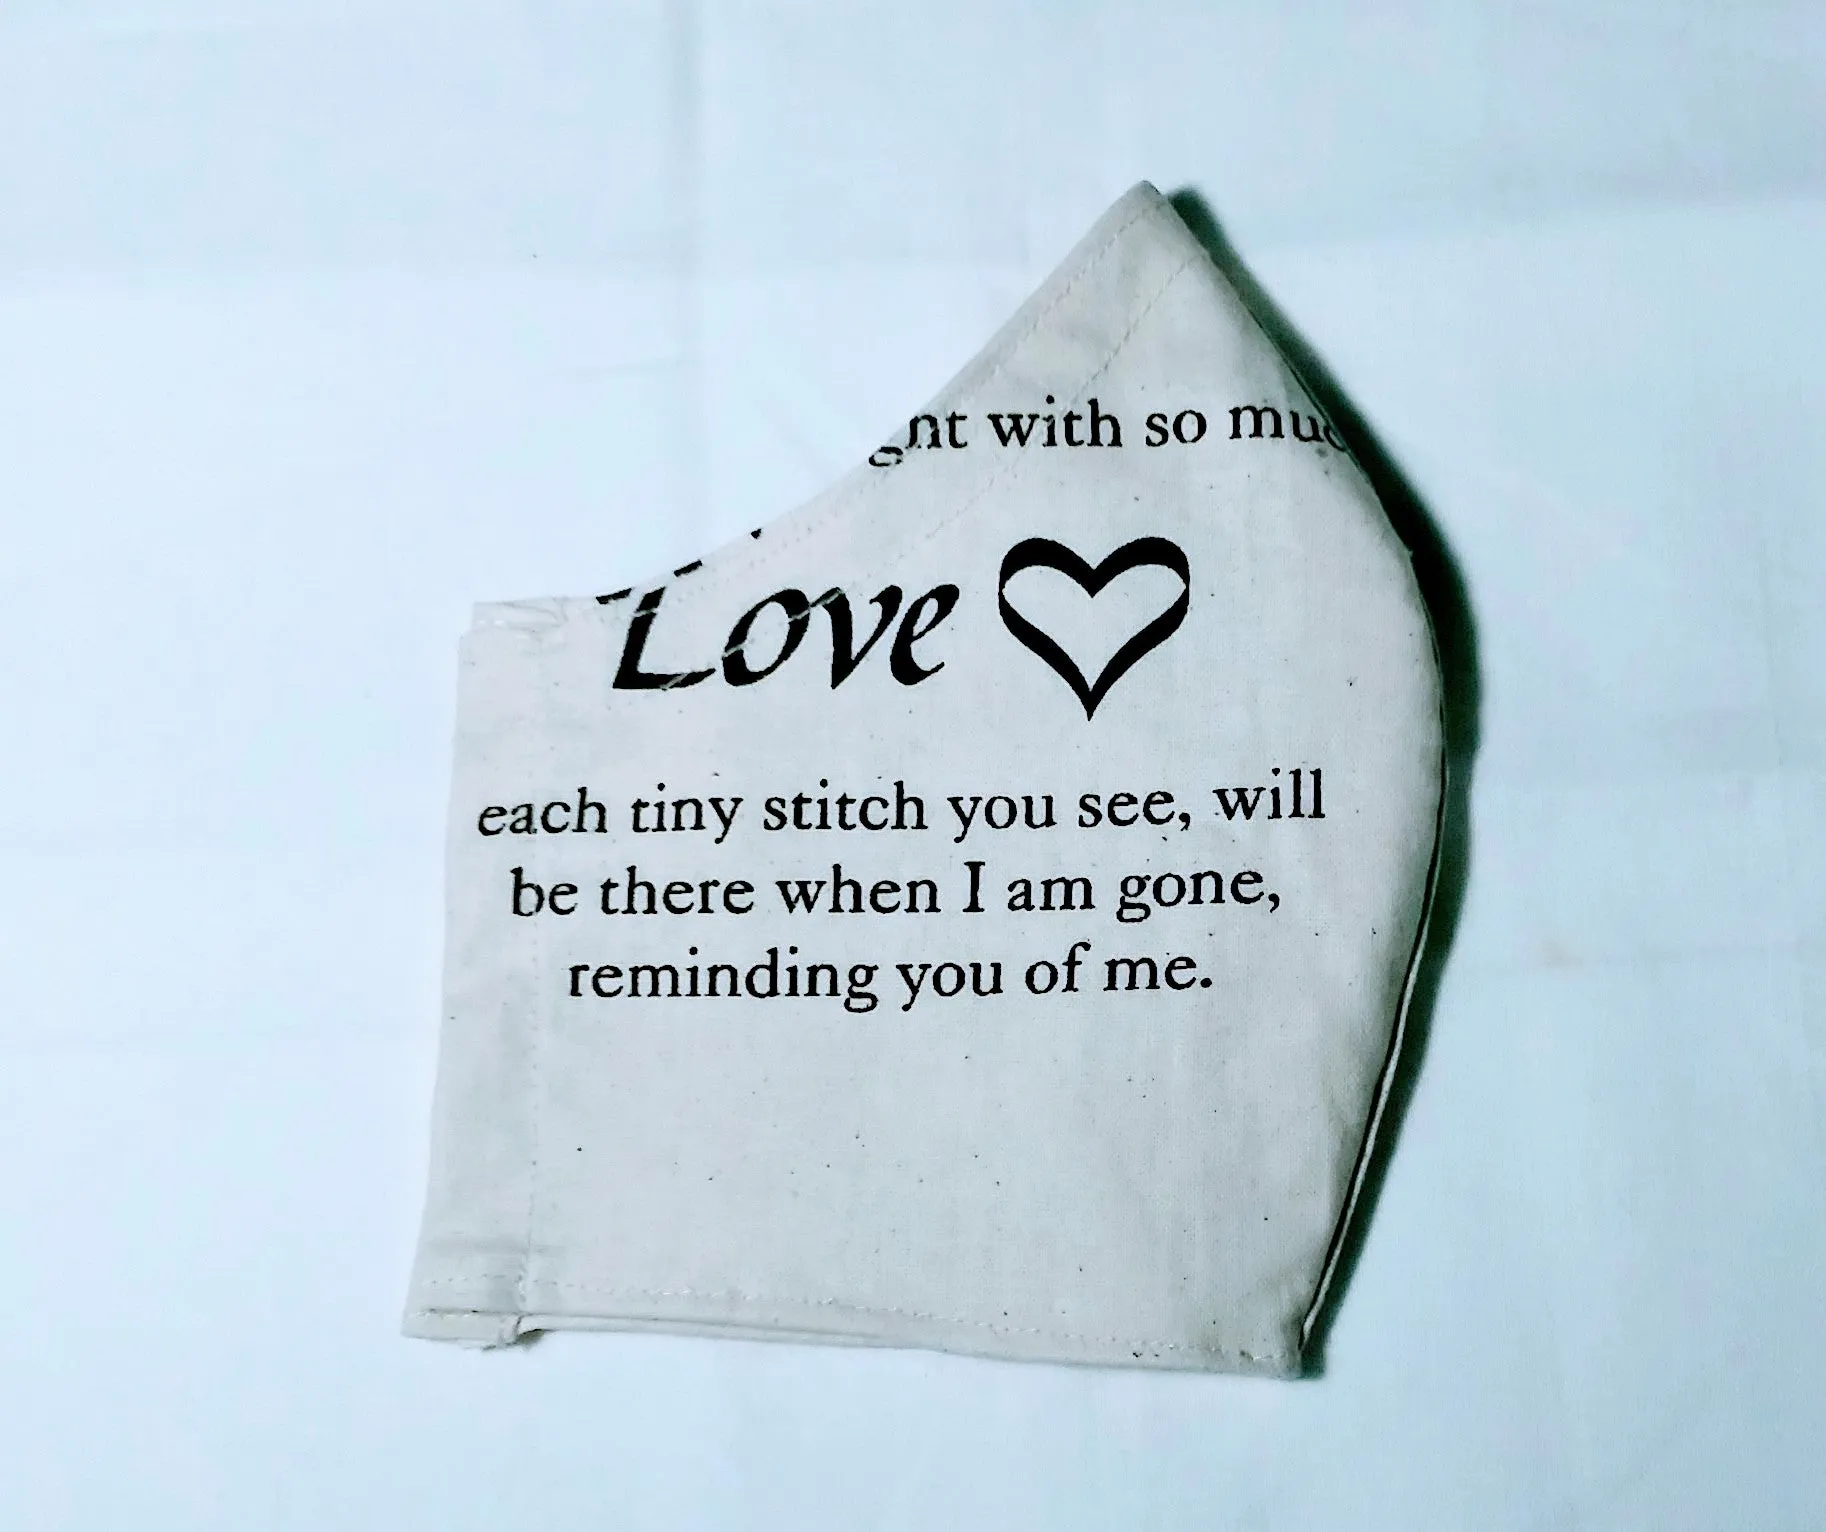 with so
Love
each tiny stitch you see, will
be there when I am gone,
reminding you of me.